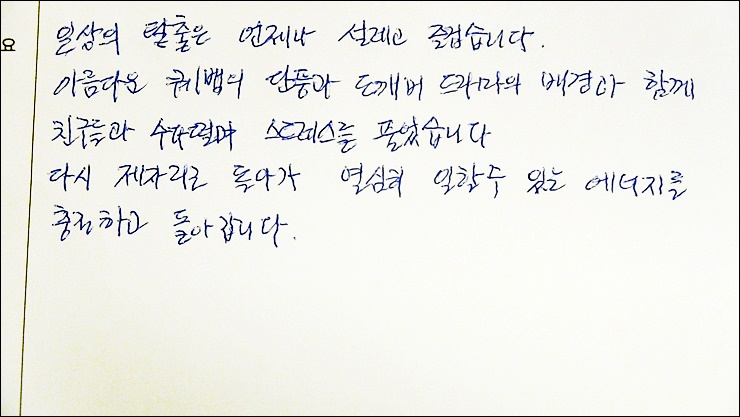 요
일상의 탈출은 언제나 설레고 즐겁습니다.
아름다운 퀘벡의 단풍과 도깨비 드라마의 배경과 함께
친구들과 수다떨며 스트레스를 풀었습니다
다시 제자리로 돌아가 열심히 일할수 있는 에너지를
충전하고 돌아갑니다.